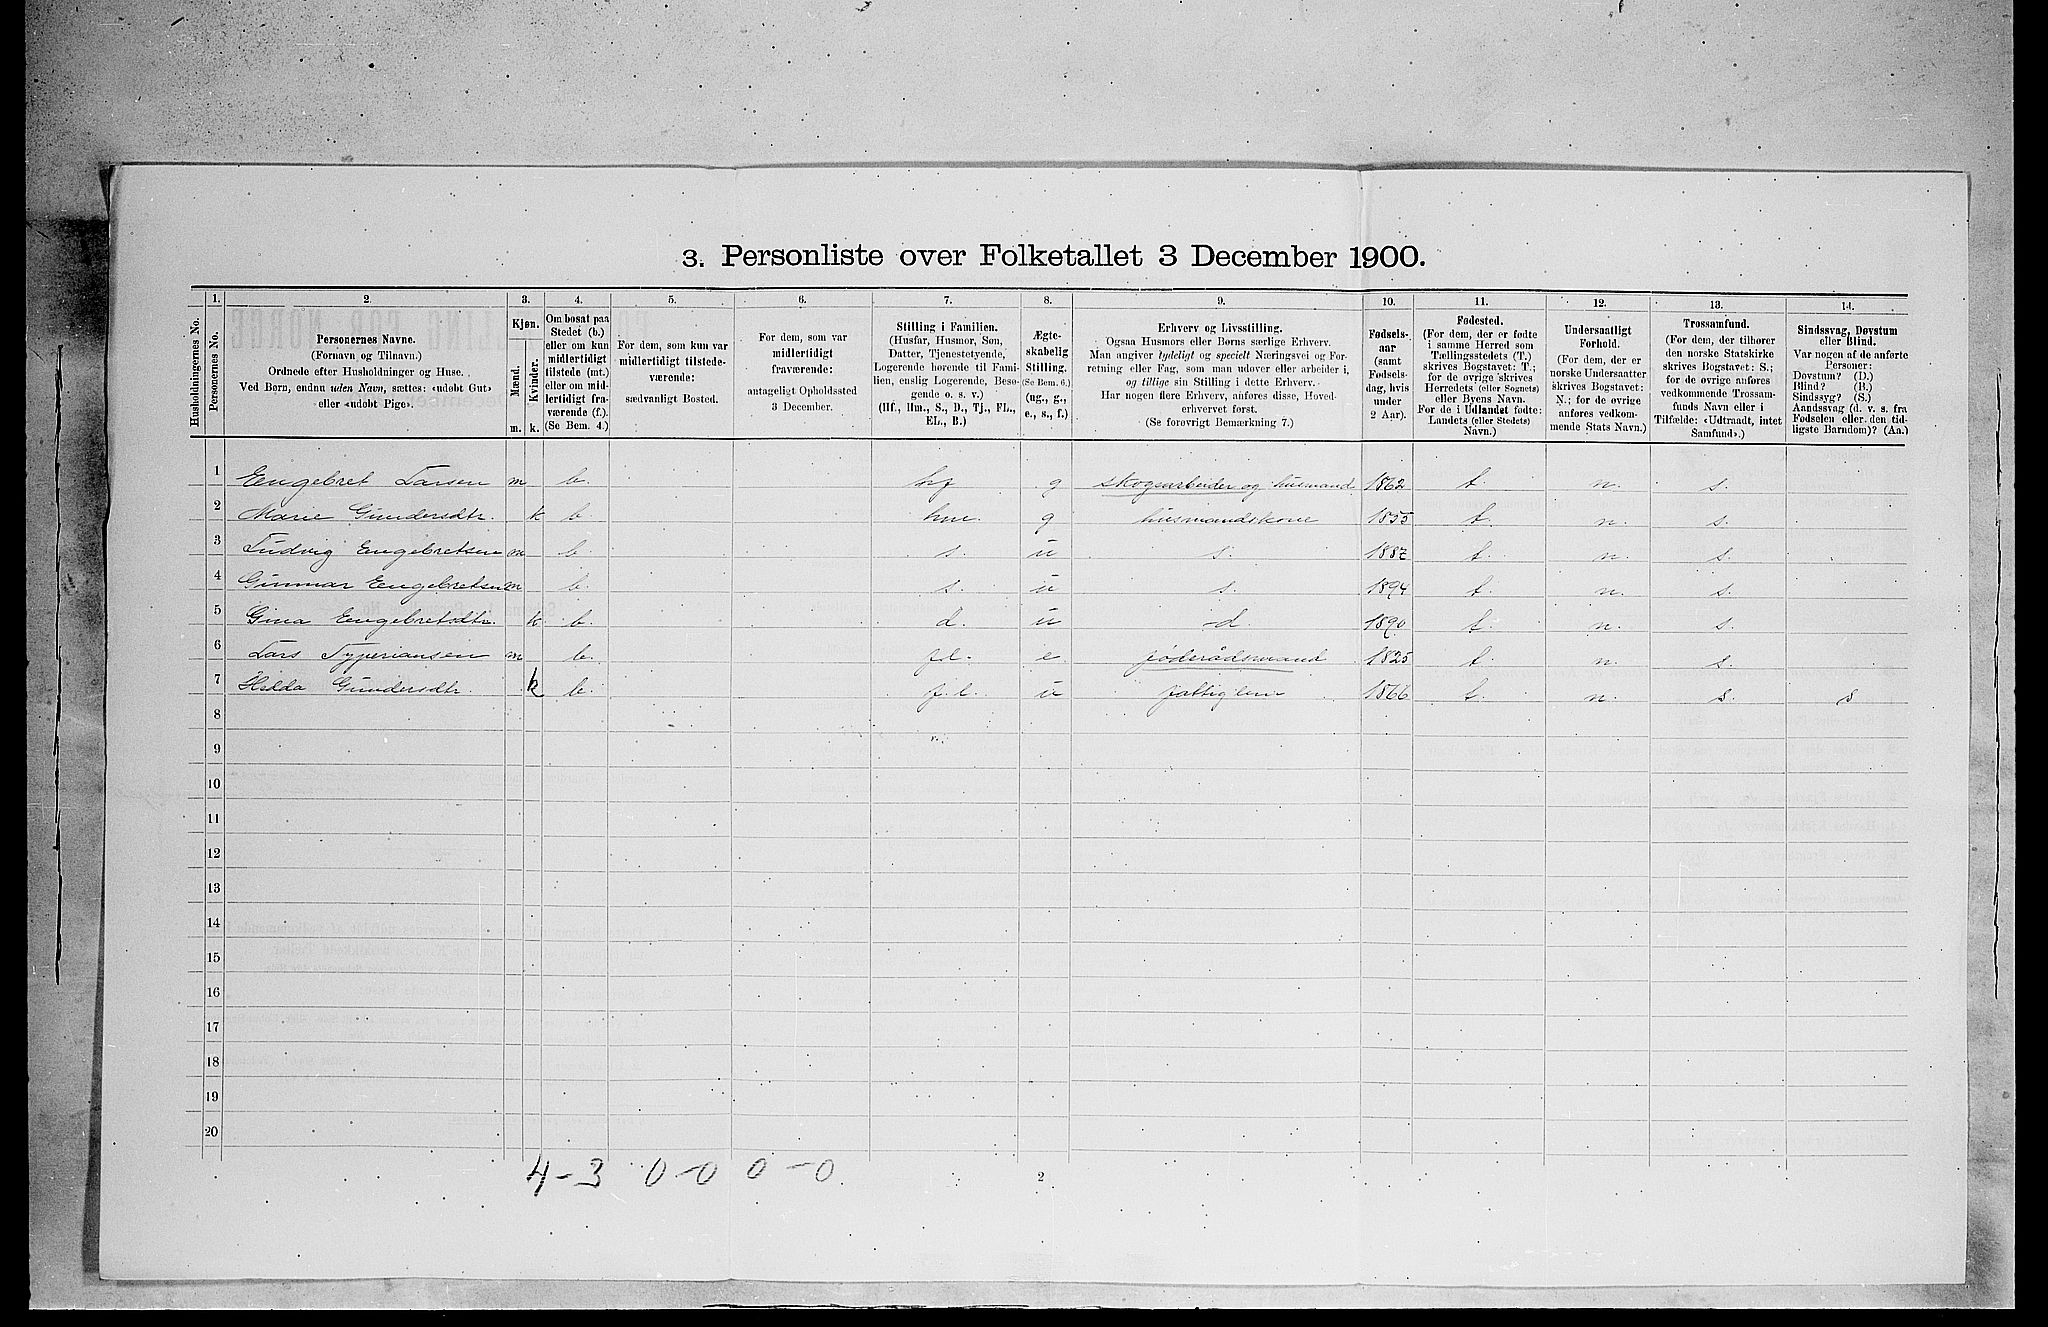 3. Personliste over Folketallet 3 December 1900.
1. 2. 3. 4. 5. 6. 7. 8. 9. 10. 11. 12. 13. 14.
Husholdningernes No.
Personernes No.
Personernes Navne.
(Fornavn og Tilnavn.)
Ordnede efter Husholdninger og Huse.
Ved Børn, endnu uden Navn, sættes: «udøbt Gut»
eller «udøbt Pige».
Kjøn.
Mænd.
Kvinder.
m. k.
Om bosat paa
Stedet (b.)
eller om kun
midlertidigt
tilstede (mt.)
eller om mid-
lertidigt fra-
værende (f.)
(Se Bem. 4.)
For dem, som kun var
midlertidigt tilstede-
værende:
sædvanligt Bosted.
For dem, som var
midlertidigt
fraværende:
antageligt Opholdssted
3 December.
Stilling i Familien.
(Husfar, Husmor, Søn,
Datter, Tjenestetyende,
Logerende hørende til Fami-
lien, enslig Logerende, Besø-
gende o. s. v.)
(Hf., Hm., S., D., Tj., FL.,
EL., B.)
Ægte-
skabelig
Stilling.
(Se Bem. 6.)
(ug., g.,
e., s., f.)
Erhverv og Livsstilling.
Ogsaa Husmors eller Børns særlige Erhverv.
Man angiver tydeligt og specielt Næringsvei og For-
retning eller Fag, som man udøver eller arbeider i,
og tillige sin Stilling i dette Erhverv.
Har nogen flere Erhverv, anføres disse, Hoved-
erhvervet først.
(Se forøvrigt Bemærkning 7.)
Fødsels-
aar
(samt
Fødsels-
dag, hvis
under
2 Aar).
Fødested.
(For dem, der er fødte
i samme Herred som
Tællingsstedets (T.)
skrives Bogstavet: T.;
for de øvrige skrives
Herredets (eller Sognets)
eller Byens Navn.
For de i Udlandet fødte:
Landets (eller Stedets)
Navn.)
Undersaatligt
Forhold.
(For dem, der er
norske Undersaatter
skrives Bogstavet:
N.; for de øvrige
anføres vedkom-
mende Stats Navn.)
Trossamfund.
(For dem, der tilhører
den norske Statskirke
skrives Bogstavet: S.;
for de øvrige anføres
vedkommende Trossam-
funds Navn eller i
Tilfælde: «Udtraadt, intet
Samfund».)
Sindssvag, Døvstum
eller Blind.
Var nogen af de anførte
Personer:
Døvstum? (D.)
Blind? (B.)
Sindssyg? (S.)
Aandssvag (d. v. s. fra
Fødselen eller den tid-
ligste Barndom)? (Aa.)
1 Engebret Larsen m b. hf g skogsarbeider og husmand 1862 t. n. s.
2 Marie Gundersdtr. k b. hm. g husmandskone 1855 t. n. s.
3 Ludvig Engebretsen m b. s. u s. 1887 t. n. s.
4 Gunnar Engebretsen m b. s. u s. 1894 t. n. s.
5 Gina Engebretsdtr. k b. d. u d. 1890 t. n. s.
6 Lars Typeriansen m b. fl. e. føderådsmand 1825 t. n. s.
7 Hilda Gundersdtr. k b. f.l. u fattiglem 1866 t. n. s s
8
9
10
11
12
13
14
15
16
17
18
19
20
4-3 0-0 0-0
2